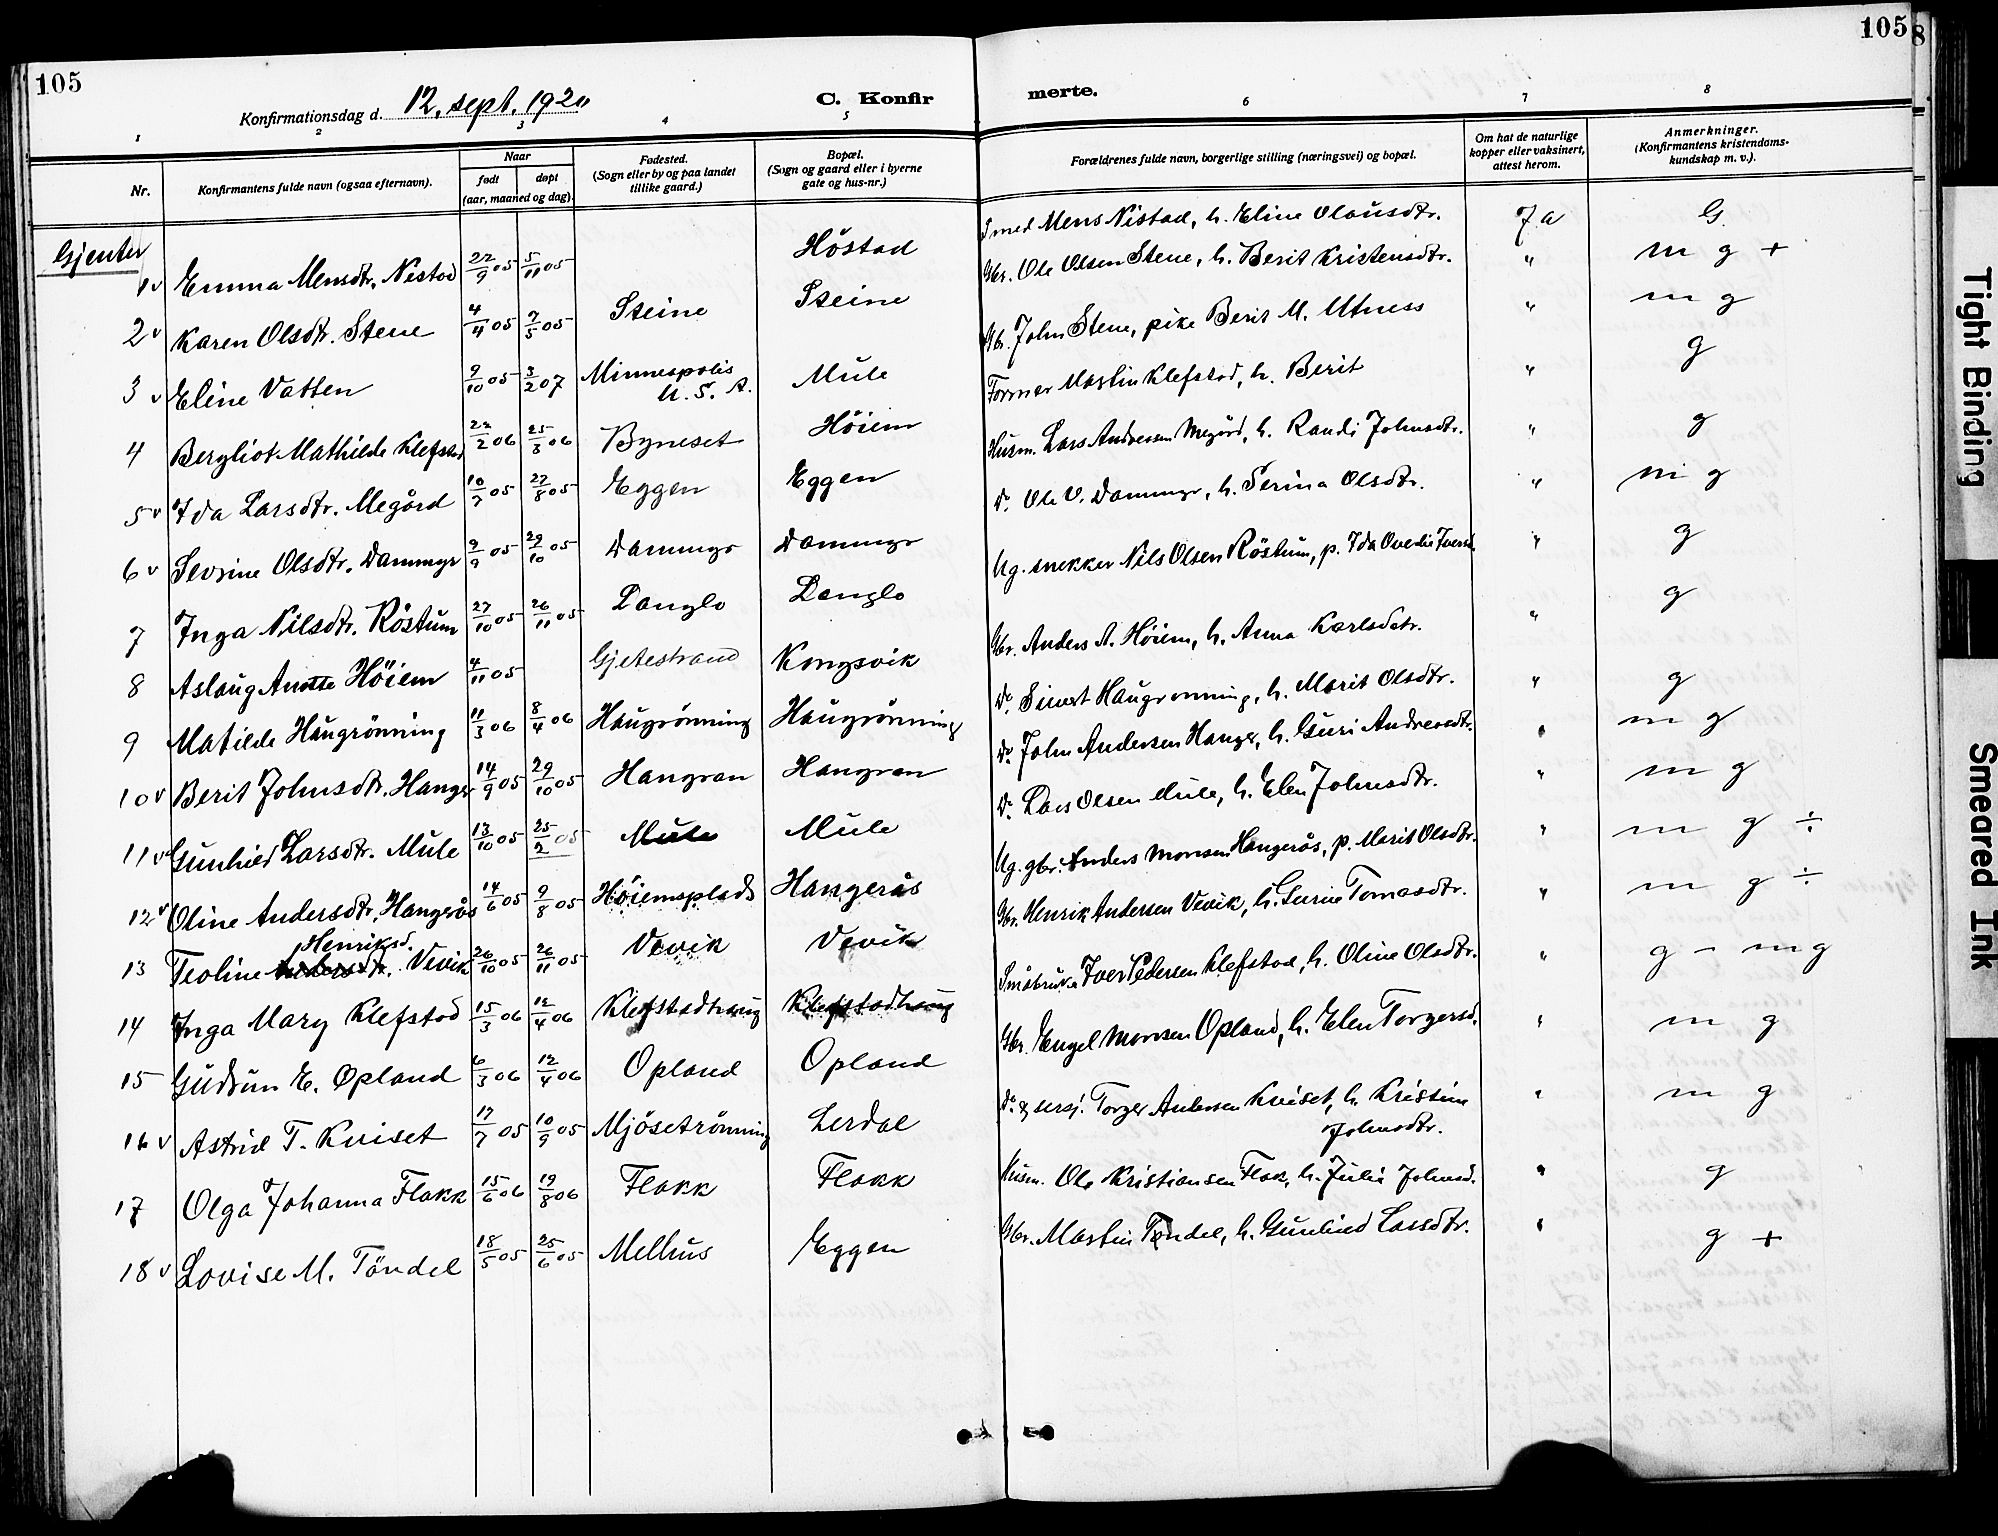 105
105
8
Konfirmationsdag d. 12. sept. 1920
C. Konfir
merte.
1 2 3 4 5 6 7 8
Nr.
Konfirmantens fulde navn (ogsaa efternavn).
Naar
født
døpt
(aar, maaned og dag).
Fødested.
(Sogn eller by og paa landet
tillike gaard.)
Bopæl.
(Sogn og gaard eller i byerne
gate og hus-nr.)
Forældrenes fulde navn, borgerlige stilling (næringsvei) og bopæl.
Om hat de naturlige
kopper eller vaksinert,
attest herom.
Anmerkninger.
(Konfirmantens kristendoms-
kundskap m. v.).
Gjenter
1 v Emma Mensdtr. Nistad 22/9 05 5/11 05 Höstad Smed Mens Nistad, h. Eline Olausdtr. Ja G.
2 v Karen Olsdtr. Stene 4/4 05 7/5 05 Steine Steine Gbr. Ole Olsen Stene, h. Berit Kristensdtr. " m g +
3 v Eline Vatten 9/10 05 3/2 07 Minnespolis U. S. A. Mule Gbr. John Stene, pike Berit M. Utness " m g
4 Bergliot Mathilde Klefstad 22/2 06 25/3 06 Byneset Höiem Former Martin Klefstad, h. Berit " g
5 v Ida Larsdtr. Megård 10/7 05 27/8 05 Eggen Eggen Husm. Lars Andersen Megård, h. Randi Johnsdtr. " g
6 v Sevrine Olsdtr. Dammyr 9/9 05 29/10 05 Dammyr Dammyr Do. Ole O. Dammyr, h. Serina Olsdtr. " m g
7 Inga Nilsdtr. Röstum 27/10 05 26/11 05 Langlo Langlo Ug. snekker Nils Olsen Röstum, p. Ida Ovedie Iversd. " g
8 Aslaug Anette Höiem 4/11 05 Gjetestrand Kongsvik Gbr. Anders A. Höiem, h. Anna Karlsdatr. " g
9 Matilde Haugrönning 11/3 06 8/4 06 Haugrönning Haugrönning Do. Sivert Haugrønning, h. Marit Olsdtr. " g
10 v Berit Johnsdtr. Hanger 14/9 05 29/10 05 Hangran Hangran Do. John Andersen Hanger, h. Guri Andreasdtr. " m g
11 v Gunhild Larsdtr. Mule 13/10 05 25/2 05 Mule Mule Do. Lars Olsen Mule, h. Elen Johnsdtr. " m g
12 v Oline Andersdtr. Hangerås 14/6 05 9/8 05 Höiemsplads Hangerås Ug. gbr. Anders Monsen Hangerås, p. Marit Olsdtr. " m g ÷
13 Teoline Andersdtr. Henriksd. Vevik 26/10 05 26/11 05 Vevik Vevik Gbr. Henrik Andersen Vevik, h. Gurine Tomasdtr. " m g ÷
14 Inga Mary Klefstad 15/3 06 12/4 06 Klefstadhaug Klefstadhaug Småbruk. Iver Pedersen Klefstad, h. Oline Olsdtr. " g - mg
15 Gudrun E. Opland 6/3 06 12/4 06 Opland Opland Gbr. Engel Monsen Opland, h. Elen Torgersd. " m g
16 v Astrid T. Kviset 17/7 05 10/9 05 Mjösetrönning Lerdal Do. & sersj. Torger Andersen Kviset, h. Kristine Johnsdtr. " m g
17 Olga Johanna Flakk 15/6 06 19/8 06 Flakk Flakk Husm. Ole Kristiansen Flak, h. Julie Johnsd. " g
18 v Lovise M. Töndel 18/5 05 25/6 05 Melhus Eggen Gbr. Martin Töndel, h. Gunhild Larsdtr. " g +
Tight Binding
Smeared Ink